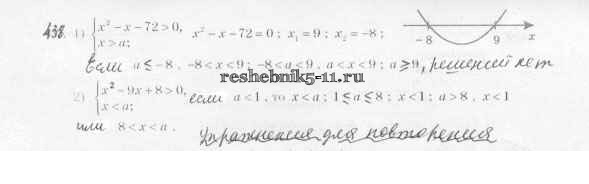 438. 1) { x² - x - 72 > 0, x² - x - 72 = 0 ; x₁ = 9 ; x₂ = -8 ;
x > a;
-8 9 x
Если a ≤ -8, -8 < x < 9 ; -8 < a < 9, a < x < 9 ; a ≥ 9, решений нет
reshebnik5-11.ru
2) { x² - 9x + 8 > 0, если a < 1, то x < a ; 1 ≤ a ≤ 8 ; x < 1 ; a > 8, x < 1
x < a;
или 8 < x < a.
Упражнения для повторения